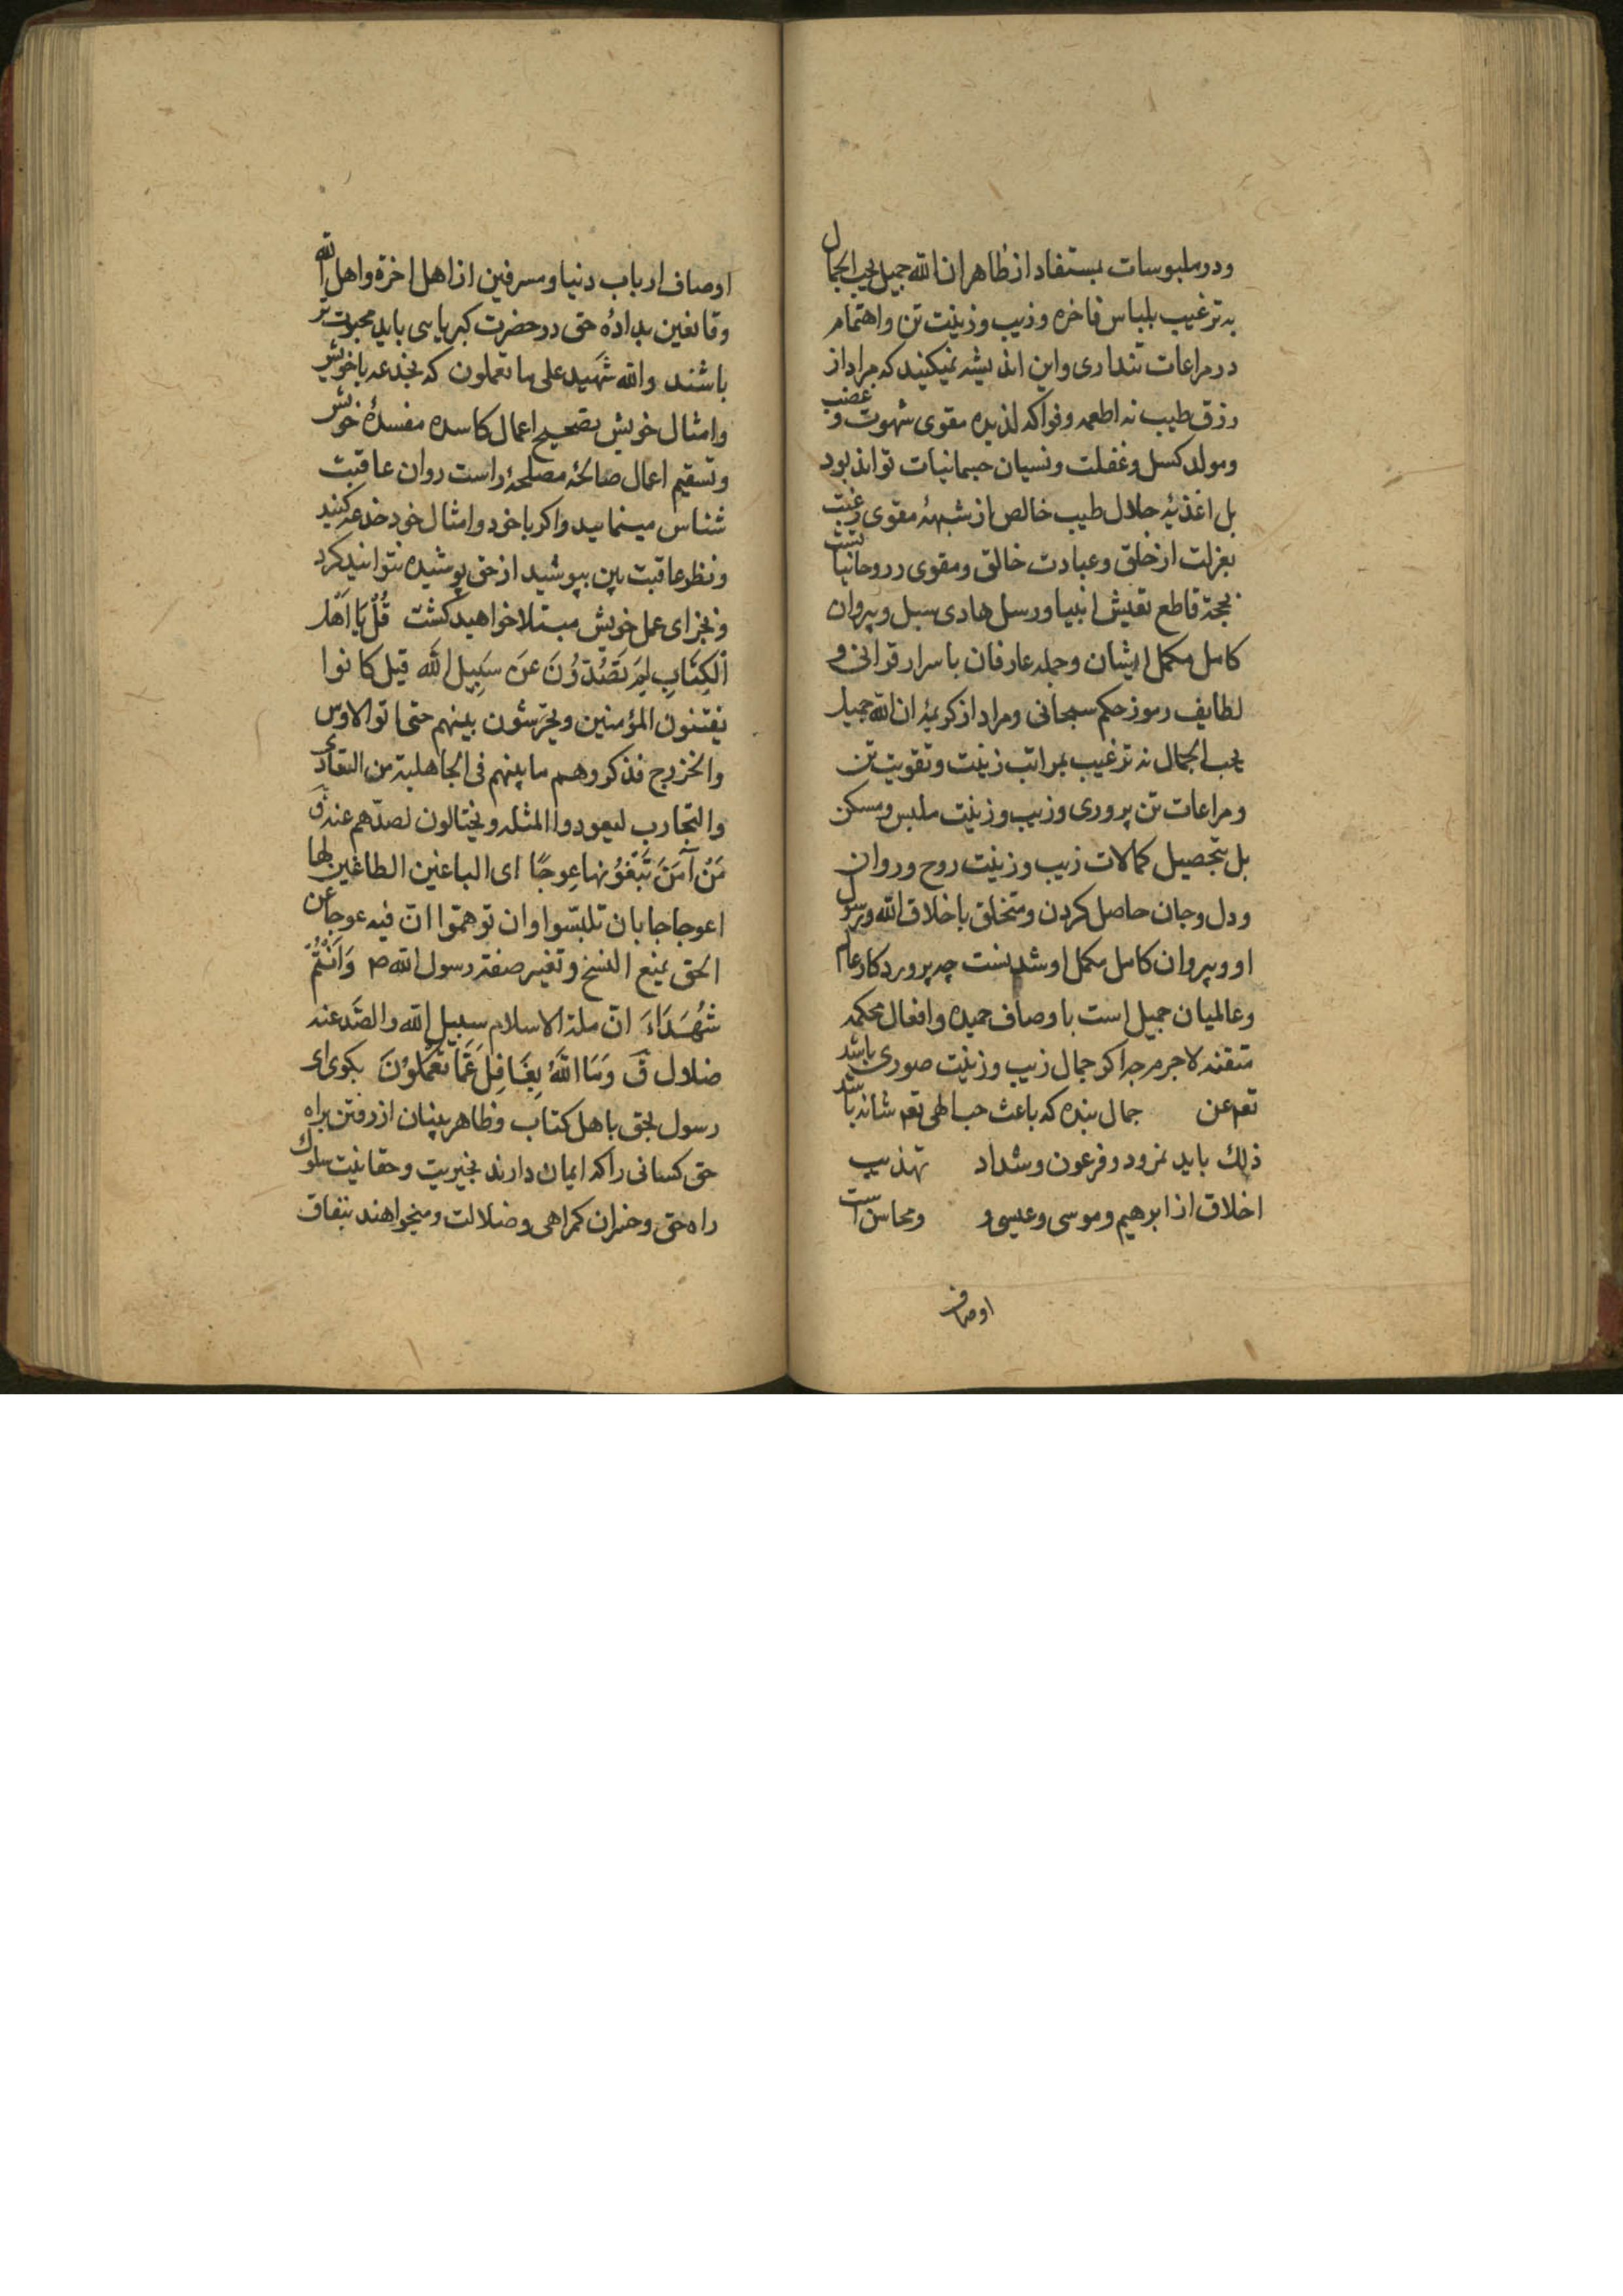 ودر ملبوسات بستفاد از ظاهر ان الله جمیل یحب الجمال
به ترغیب بلباس فاخره وزیب وزینت تن واهتمام
در مراعات تنداری واین اندیشه نمیکنید که مراد از
رزق طیب نه اطعمه وفواکه لذیده مقوی شهوت وغضب
ومولد کسل وغفلت ونسیان جسمانیات تواند بود
بل اغذیۀ حلال طیب خالص از شبهۀ مقوی رغبت
بعزلت از خلق وعبادت خالق ومقوی روحانیا تست
بحجة قاطع تعیش انبیا ورسل هادی سبل وپیروان
کامل مکمل ایشان وجمله عارفان باسرار قرانی و
لطایف رموز حکم سبحانی ومراد از کریمۀ ان الله جمیل
یحب الجمال نه ترغیب بمراتب زینت وتقویت تن
ومراعات تن پروری وزیب وزینت ملبس ومسکن
بل بتحصیل کمالات زیب وزینت روح وروان
ودل وجان حاصل کردن ومتخلق باخلاق الله ورسول
او وپیروان کامل مکمل او شدنست چه پروردکار عالم
وعالمیان جمیل است باوصاف حمیده وافعال محکمه
متقنه لاجرم چه اکر جمال زیب وزینت صوری باشد
تعم عن جمال بنده که باعث حباطی تعم شانه باشد
ذلك باید نمرود وفرعون وشداد تهذیب
اخلاق از ابرهیم وموسی وعیسی و ومحاسن است
اوصاف
اوصاف ارباب دنیا ومسرفین از اهل اخرة واهل الله
وقانعین بدادۀ حق در حضرت کبریایی باید محبوب تر
باشند والله شهید علی ما تعملون که بخدعه با خویش
وامثال خویش بتصحیح اعمال کاسده مفسدۀ خویش
وتسقیم اعمال صالحۀ مصلحۀ راست روان عاقبت
شناس مینمایید واکر باخود وامثال خود خدعه کنید
ونظر عاقبت بین بپوشید از حق پوشیده نتوانید کرد
وبجزای عمل خویش مبتلا خواهید کشت قُلْ یَا اَهْلَ
الْکِتَابِ لِمَ تَصُدُّونَ عَنْ سَبِیلِ اللّٰهِ قیل کانوا
یفتنون المؤمنین ویحرّشون بینهم حتی اتوا الاوس
والخزرج فذکروهم ما بینهم فی الجاهلیة من التعادی
والتحارب لیعودوا لمثله ویحتالون لصدّهم عنه ق
مَنْ آمَنَ تَبْغُونَهَا عِوَجًا ای الباغین الطاغین لها
اعوجاجا بان تلبّسوا وان توهمّوا انّ فیه عوجا عن
الحق بمنع النسخ وتغییر صفة رسول الله ص وَاَنْتُمْ
شُهَدَاءُ انّ ملة الاسلام سبیل الله والصّد عنه
ضلال ق وَمَا اللّٰهُ بِغَافِلٍ عَمَّا تَعْمَلُونَ بکوی ای
رسول بحق باهل کتاب وظاهر بینان از رفتن براه
حق کسانی را که ایمان دارند بخیریت وحقانیت سلوك
راه حق وخسران کمراهی وضلالت ومیخواهند بنفاق